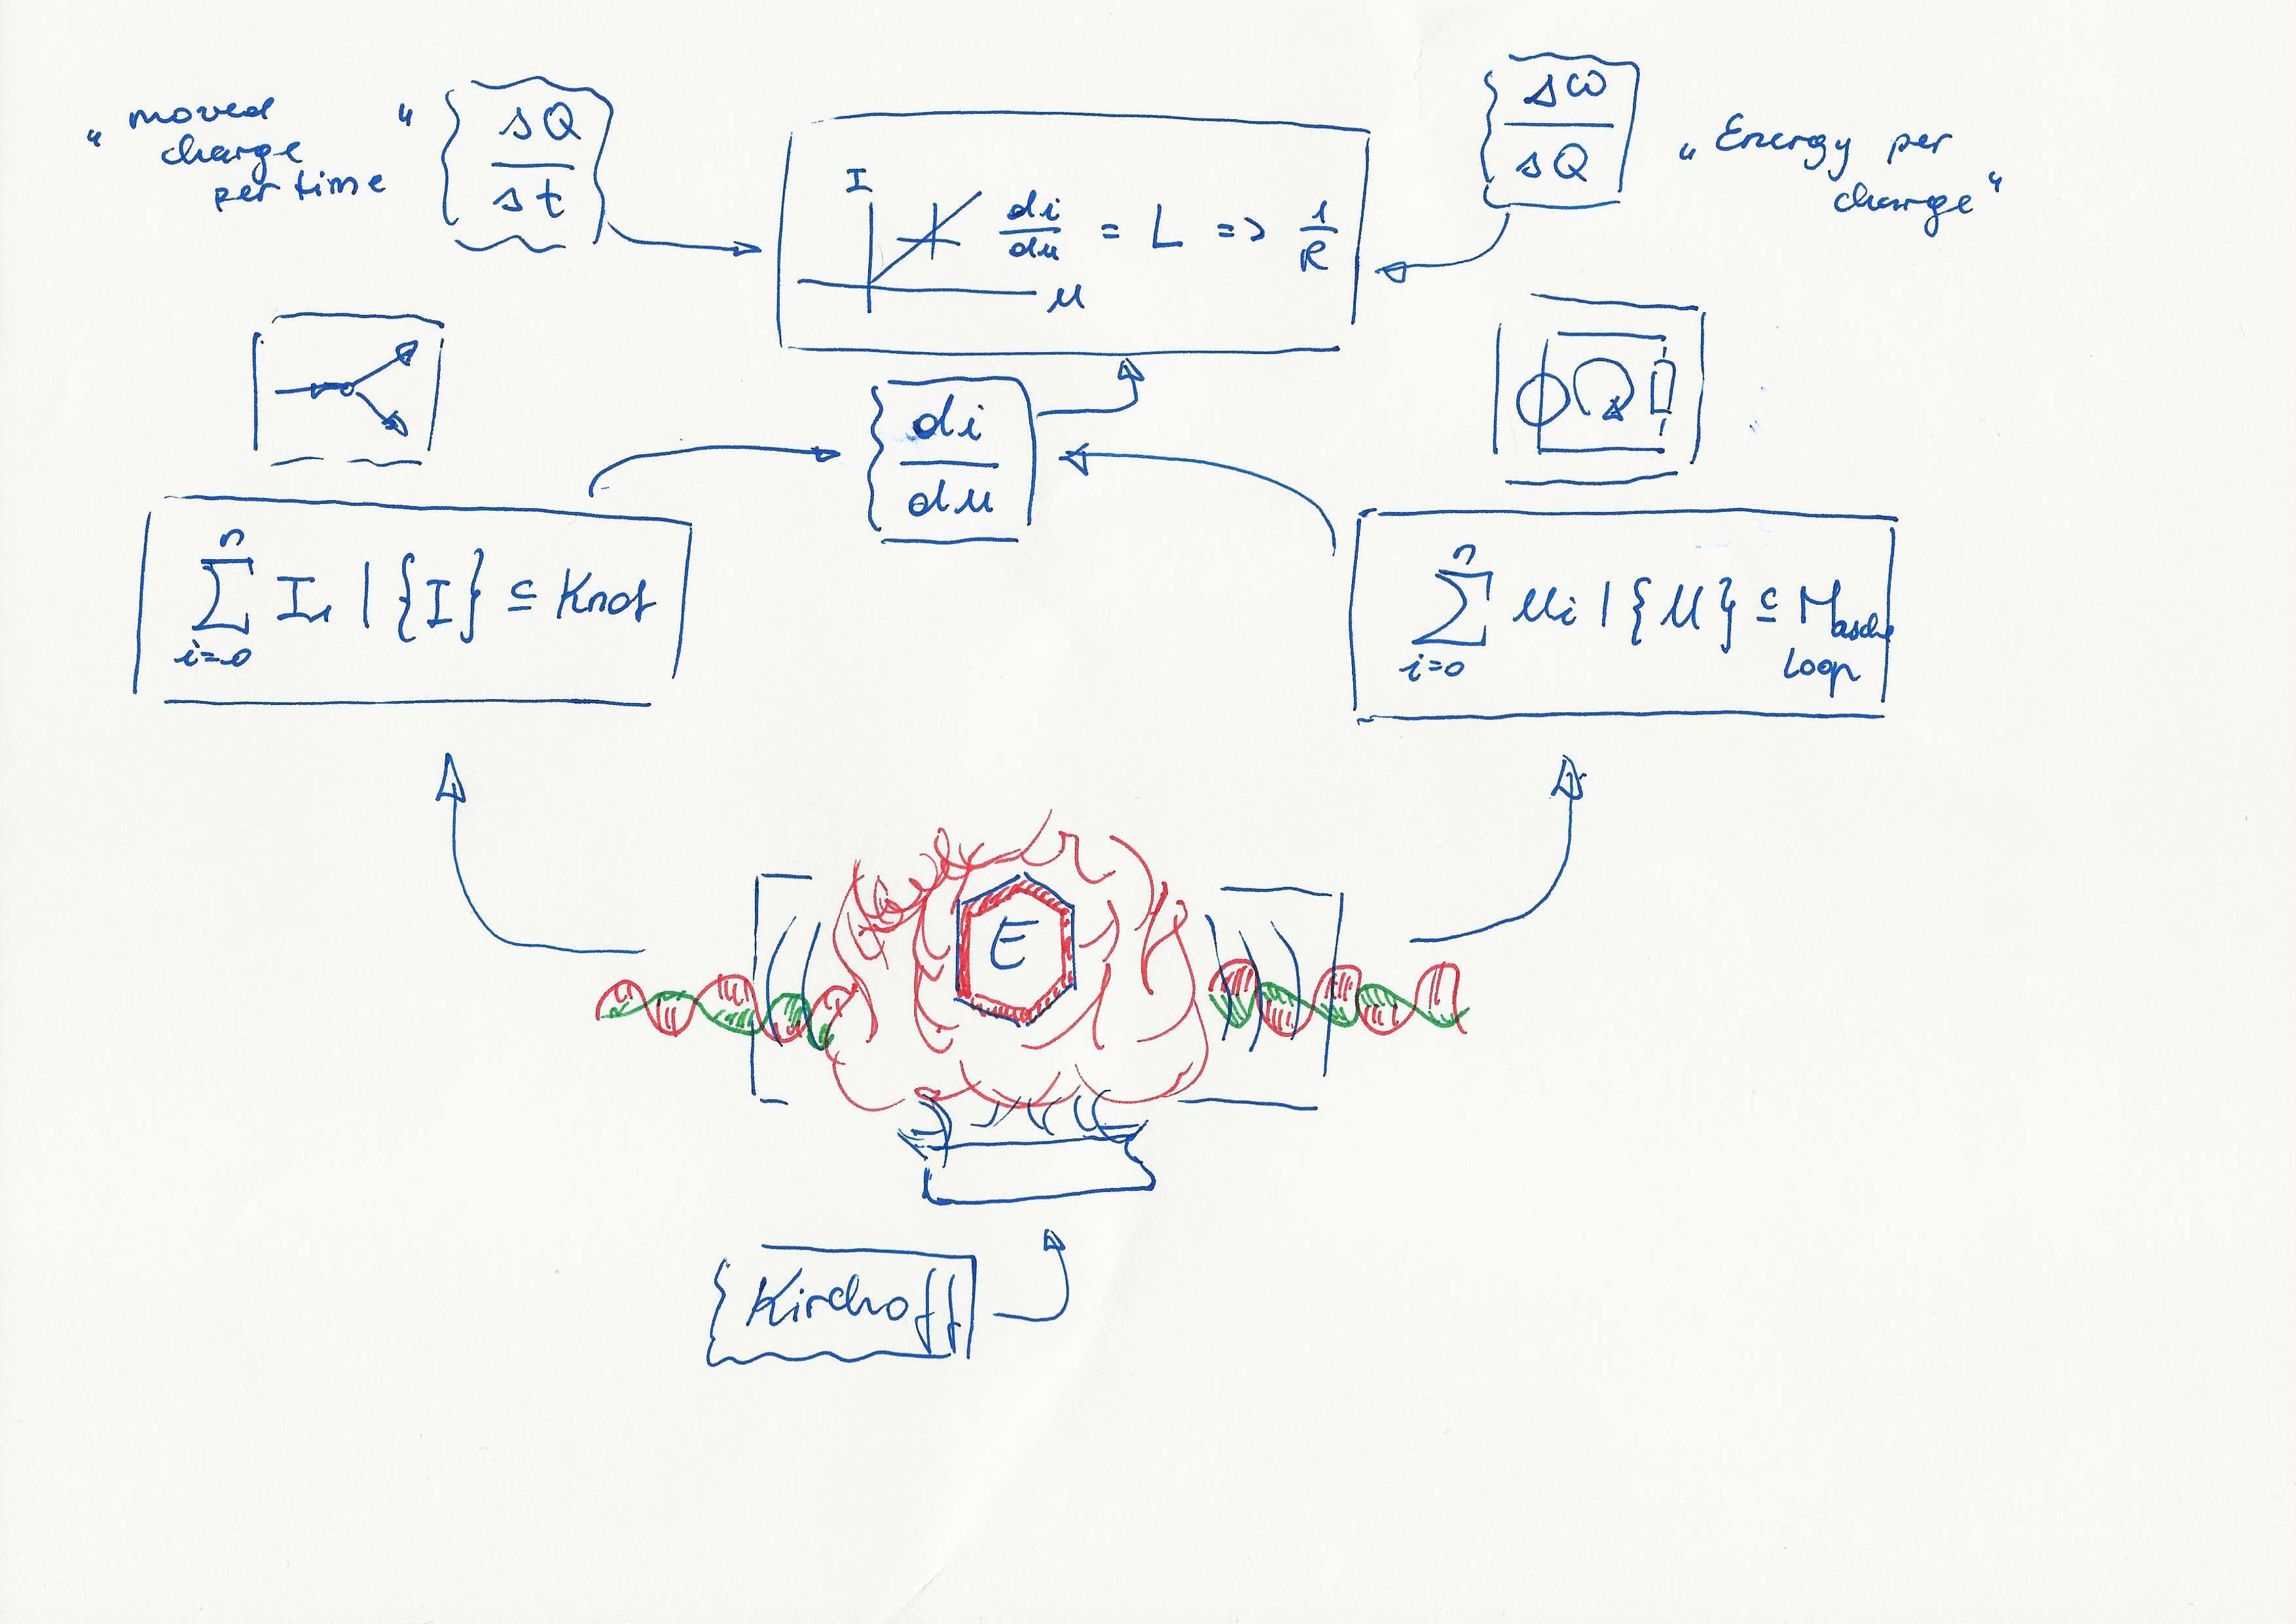 „ moved “
charge
per time
ΔQ
Δt
I
di
du
= L => 1
R
u
Δω
ΔQ
„ Energy per
charge “
di
du
n
Σ Ii | {I} ⊆ Knot
i=0
n
Σ Ui | {U} ⊆ Masche
i=0
Loop
E
Kirchoff